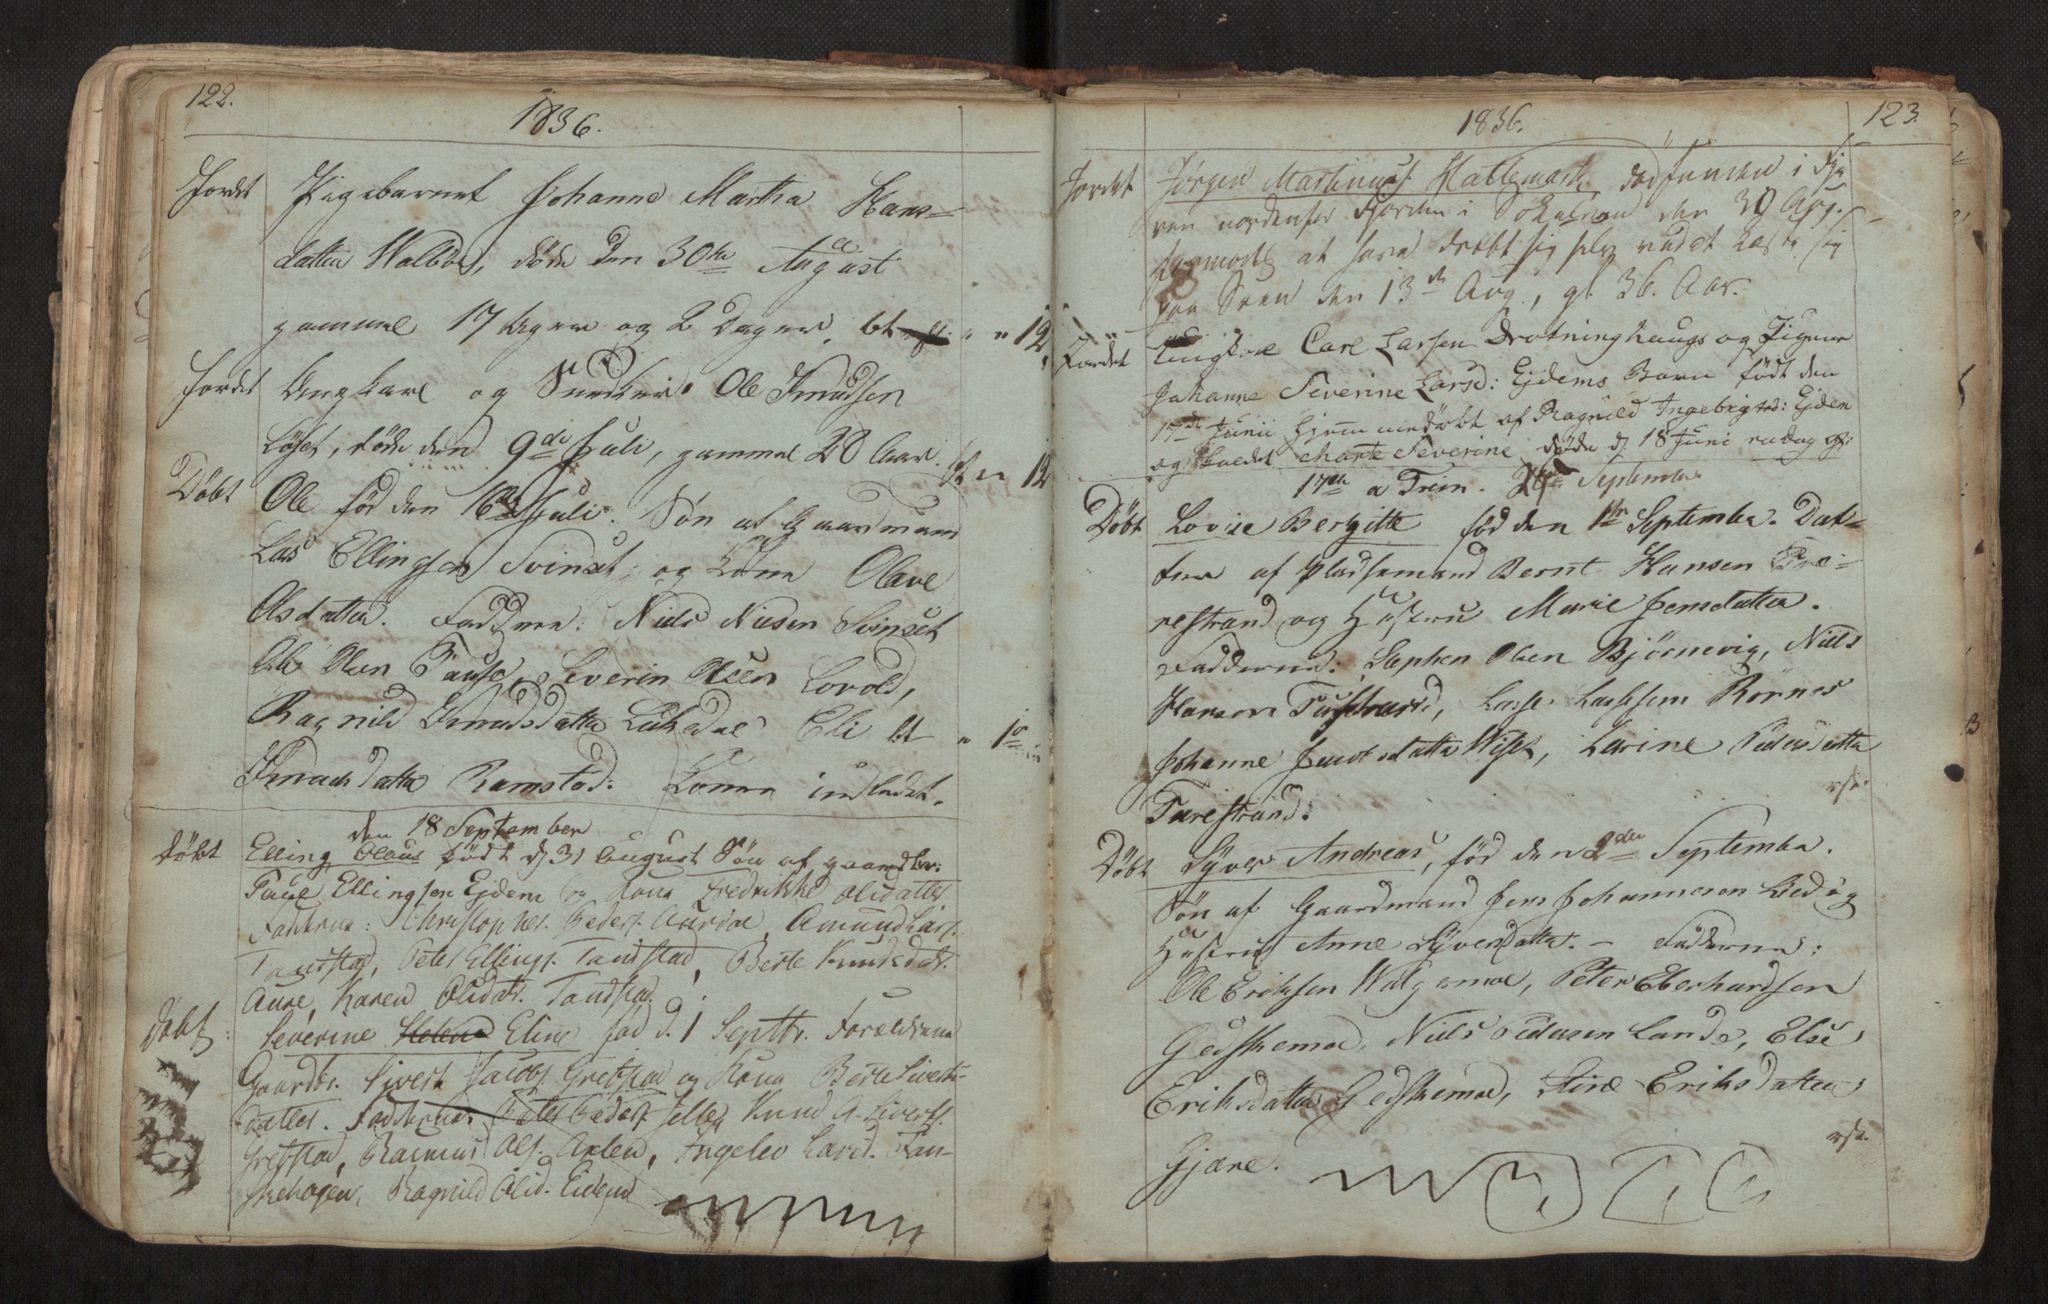 122.
1836.
Jordet Pigebarnet Johanne Martha Hans=
datter Walbøe, døde den 30te August
gammel 17 Uger og 2 Dager. bt " " 12
Jordet Ungkarl og Snedker Ole Knudsen
Løset, døde den 9de Juli, gammel 28 Aar. 12
Døbt Ole fød den 16de Juli. Søn af Gaardmand
Lars Ellingsen Svinset og Kone Olave
Olsdatter. Faddere: Niels Nielsen Svinset
Ole Olsen Fauske, Severin Olsen Lovold,
Ragnild Knudsdatter Eli bt " 10
Knudsdatter Ramstad. Konen indledet.
den 18 September
Døbt Elling Olaus født d 31 August Søn af gaardbr:
Paul Ellingsen Eidem og Kone Fredrikke Olsdatter
Fadderne: Christopher Peders. Aurdal, Amund Lars.
Tandstad, Peter Ellings. Tandstad, Berte Knudsdat.
Aure, Karen Olsdat. Tandstad.
Døbt: Severine Helena Eline fød d. 1 Septbr. Forældrene
Gaardbr. Sivert Jacobs. Gretstad og Kona Berte Siverts-
datter. Fadderne: Peter Peders. Knud A. Siverts.
Gretstad, Rasmus Ols. Ingelev Larsd. Fan-
Ragnild Olsd. Eidem
1836.
123.
Jordet Jørgen Martinus Hattemark, død funden i Fjæ
ren nordenfor Fjorden i den 30 Aug.
formodes at have dræbt sig selv ved at kaste sig
paa Søen den 13de Aug., gl. 36. Aar.
Jordet Ungkarl Carl Larsen Drotninghaugs og Pigene
Johanne Severine Larsd: Ejdems Barn født den
17de Junii hjemmedøbt af Ragnild Ingebrigtsd: Ejdem
og kaldet Marte Severine, døde d 18 Juni
17de a Trin. 25 September
Døbt Lovise Bergitte fød den 1te September. Dat=
ter af pladsemand Bernt Hansen Tre-
restrand og Hustru Marie Jensdatter.
Fadderne: Stephen Olsen Bjørnevig, Niels
Hansen Lasse Lassesen Rørnes
Johanne Wiset, Lavine Pedersdatter
Turestrand.
Døbt Syver Andreas, fød den 2den September.
Søn af Gaardmand Jens Johannesen Lied og
Hustru Anne Syversdatter. - Fadderne:
Ole Eriksen Walgermoe, Peter Eberhardsen
Gedskemoe, Niels Pedersen Lande, Else
Eriksdatter Gedskemoe, Eriksdatter
Gjære.